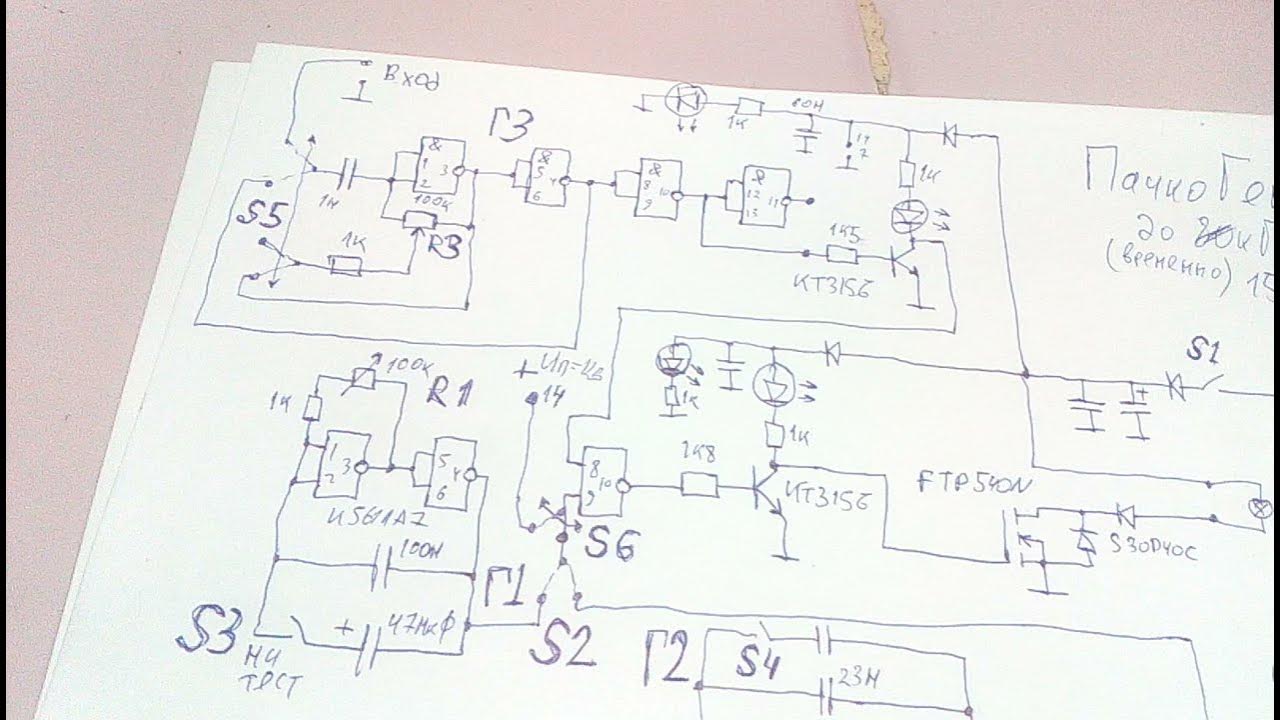 Вход
Г3
1к
80н
14
7
1к
&
1
2
3
&
5
6
4
&
8
9
10
&
12
13
11
1н
100к
S5
1к
R3
1к5
КТ315Б
до
(временно) 15
S1
100к
R1
1к
+
14
1к
1к
1
2
3
5
6
4
8
9
10
1К8
КТ315Б
FTP540N
К561ЛА7
S6
S30D40C
100н
Г1
S3
+
47мкФ
НЧ
тест
S2
Г2
S4
23н
+